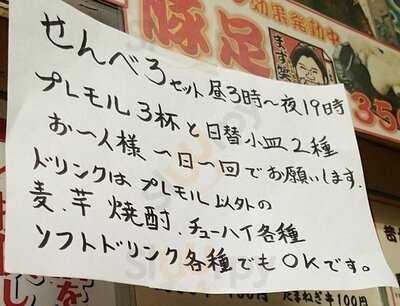 効果発動中
豚足
ます
せんべろセット昼3時～夜19時
プレモル3杯と日替小皿2種
お一人様一日一回でお願いします.
ドリンクはプレモル以外の
麦.芋焼酎.チューハイ各種
ソフトドリンク各種でもOKです。
100円
たまねぎ串100円